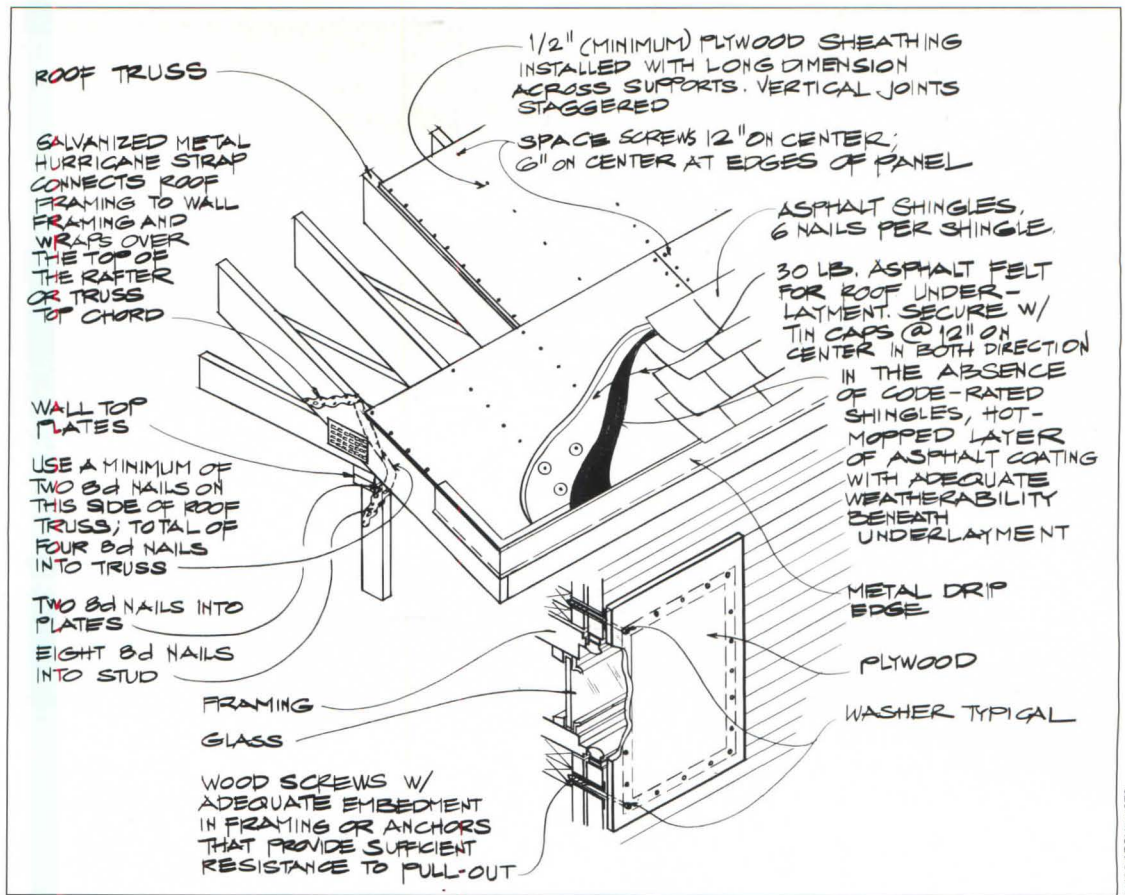 ROOF TRUSS
GALVANIZED METAL
HURRICANE STRAP
CONNECTS ROOF
FRAMING TO WALL
FRAMING AND
WRAPS OVER
THE TOP OF
THE RAFTER
OR TRUSS
TOP CHORD
WALL TOP
PLATES
USE A MINIMUM OF
TWO 8d NAILS ON
THIS SIDE OF ROOF
TRUSS; TOTAL OF
FOUR 8d NAILS
INTO TRUSS
TWO 8d NAILS INTO
PLATES
EIGHT 8d NAILS
INTO STUD
FRAMING
GLASS
WOOD SCREWS W/
ADEQUATE EMBEDMENT
IN FRAMING OR ANCHORS
THAT PROVIDE SUFFICIENT
RESISTANCE TO PULL-OUT
1/2" (MINIMUM) PLYWOOD SHEATHING
INSTALLED WITH LONG DIMENSION
ACROSS SUPPORTS. VERTICAL JOINTS
STAGGERED
SPACE SCREWS 12" ON CENTER;
6" ON CENTER AT EDGES OF PANEL
ASPHALT SHINGLES,
6 NAILS PER SHINGLE.
30 LB. ASPHALT FELT
FOR ROOF UNDER-
LAYMENT. SECURE W/
TIN CAPS @ 12" ON
CENTER IN BOTH DIRECTION
IN THE ABSENCE
OF CODE-RATED
SHINGLES, HOT-
MOPPED LAYER
OF ASPHALT COATING
WITH ADEQUATE
WEATHERABILITY
BENEATH
UNDERLAYMENT
METAL DRIP
EDGE
PLYWOOD
WASHER TYPICAL